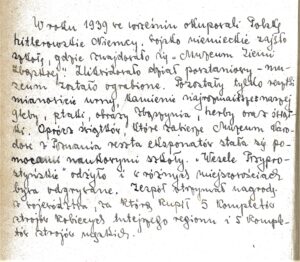 W roku 1939 we wrześniu okupowali Polskę
hitlerowskie Niemcy. Wojsko niemieckie zajęło
szkołę, gdzie znajdowało się - Muzeum Ziemi
Zlikwidowało dział - mu-
zeum zostało ograbione. Pozostały tylko
mianowicie urny, kamienie naszej
gleby, ptaki, obrazy herby oraz
Oprócz które zabierze Muzeum Naro-
dowe z Poznania reszta eksponatów stała się po-
mocami naukowymi szkoły. "Wesele Przypro-
styńskie" odżyło i w różnych miejscowościach
było odgrywane. Zespół otrzymał nagrodę
z województwa, za którą kupił 5 kompletów
strojów kobiecych tutejszego regionu i 5 komple-
tów strojów męskich.